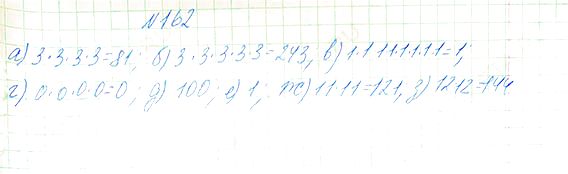 №162
а) 3·3·3·3=81; б) 3·3·3·3·3=243, в) 1·1·1·1·1·1·1=1;
г) 0·0·0·0=0; д) 100; е) 1; ж) 11·11=121, з) 12·12=144